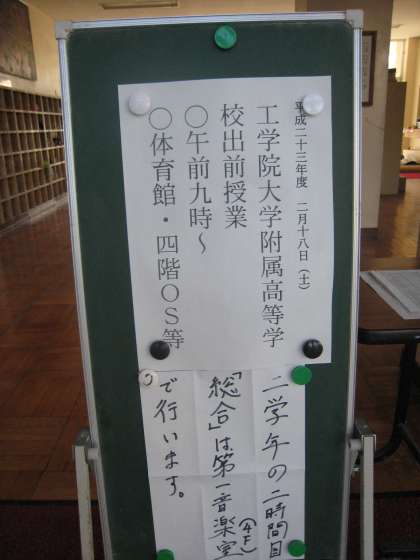 平成二十三年度 二月十八日(土)
工学院大学附属高等学
校出前授業
〇午前九時～
〇体育館・四階OS等
二学年の二時間目
「総合」は第一音楽室(4F)
で行います。